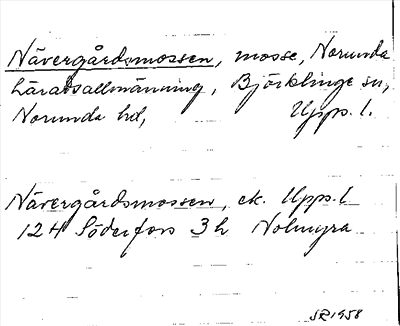 Nävergårdsmossen, mosse, Norunda
häradsallmänning, Björklinge sn,
Norunda hd, Upps. l.
Nävergårdsmossen, ek. Upps. l.
12 H Söderfors 3h Nolmyra
SR 1958